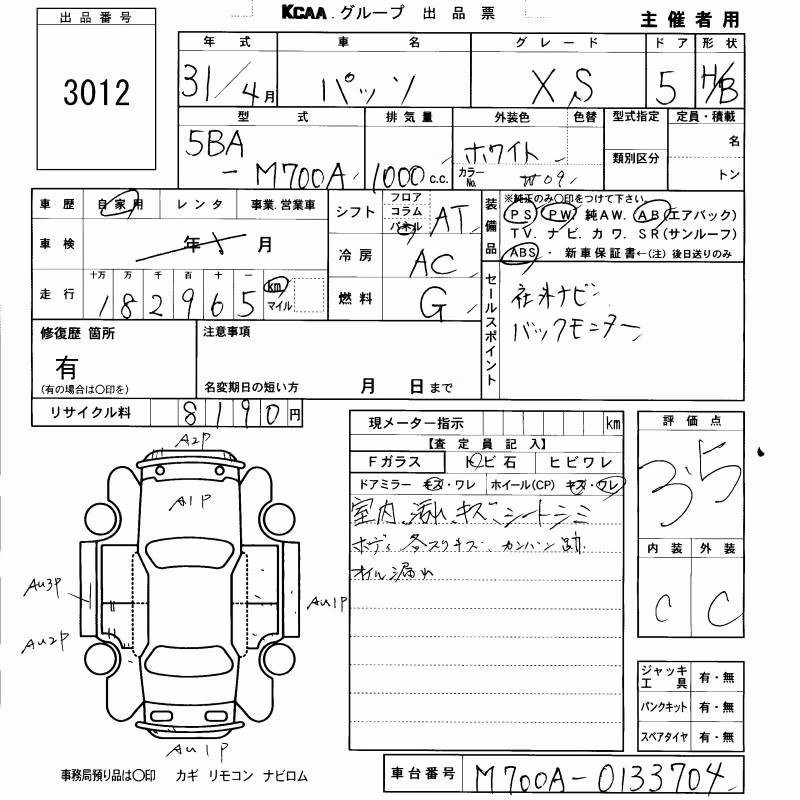 出品番号
3012
KCAA.グループ 出品票
主催者用
年式 車名 グレード ドア 形状
31/4月 パッソ X S 5 H/B
型式 排気量 外装色 色替 型式指定 定員・積載
5BA-M700A 1000c.c. ホワイト 名
カラーNo. W09 類別区分 トン
車歴 自家用 レンタ 事業.営業車
車検 年 月
走行 十万 万 千 百 十 一
182965 km マイル
シフト フロア コラム パネル AT
冷房 AC
燃料 G
装備品
※純正のみ〇印をつけて下さい
PS PW 純AW. AB(エアバック)
TV. ナビ. カワ. SR(サンルーフ)
ABS ・ 新車保証書←(注) 後日送りのみ
セールスポイント
社外ナビ
バックモニター
修復歴 箇所
有
(有の場合は〇印を)
注意事項
名変期日の短い方 月 日まで
リサイクル料 8190円
A2P
A1P
Au3P
Au2P
Au1P
Au1P
現メーター指示 km
【査定員記入】
Fガラス トビ石 ヒビワレ
ドアミラー キズ・ワレ ホイール(CP) キズ・ワレ
室内 汚れ キズ シートシミ
ボディ 各スリキズ カンバン跡
オイル漏れ
評価点
3.5
内装 外装
C C
ジャッキ工具 有・無
パンクキット 有・無
スペアタイヤ 有・無
事務局預り品は〇印 カギ リモコン ナビロム
車台番号 M700A-0133704